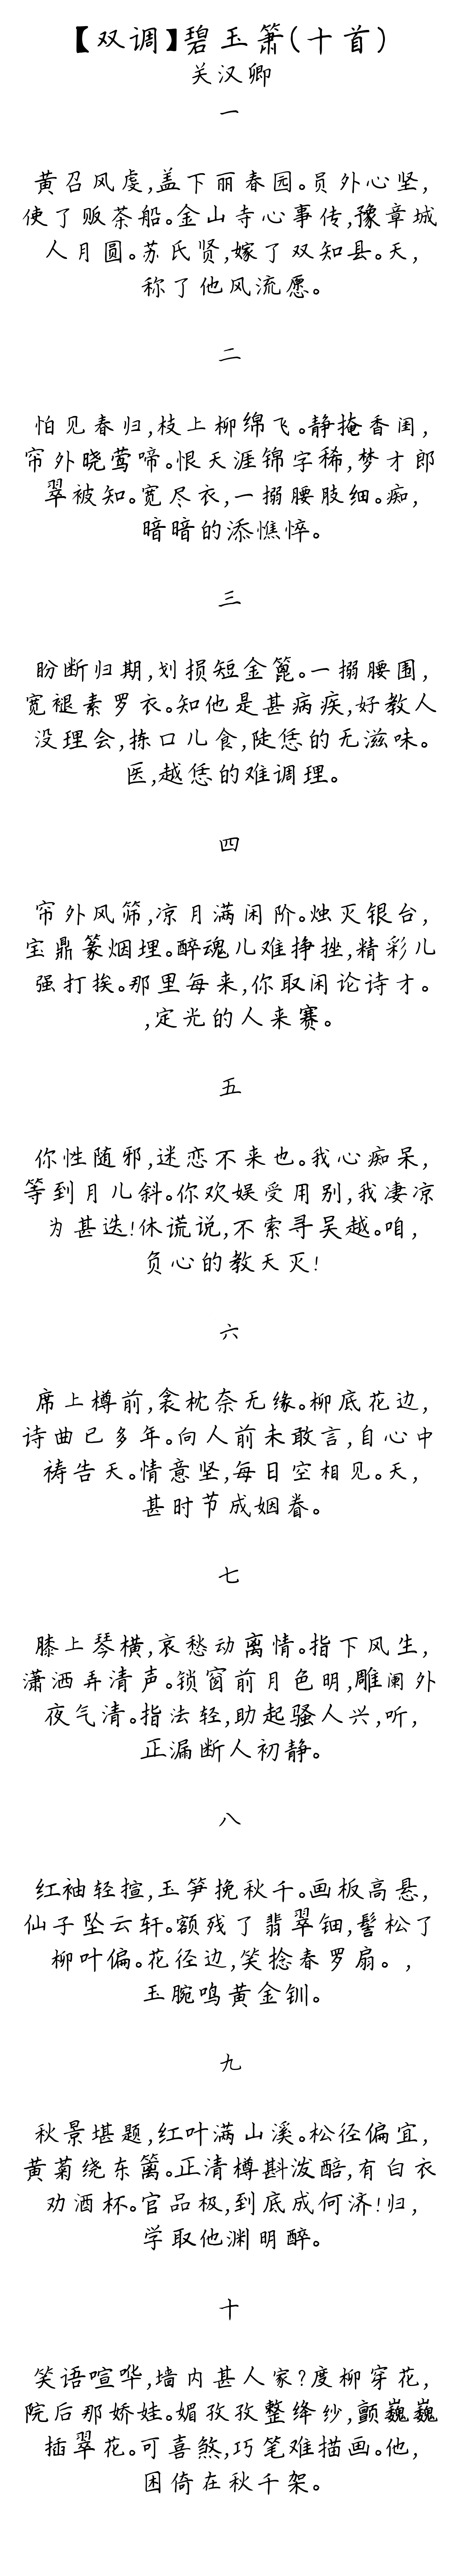 【双调】碧玉箫(十首)
关汉卿
一
黄召风虔,盖下丽春园。员外心坚,
使了贩茶船。金山寺心事传,豫章城
人月圆。苏氏贤,嫁了双知县。天,
称了他风流愿。
二
怕见春归,枝上柳绵飞。静掩香闺,
帘外晓莺啼。恨天涯锦字稀,梦才郎
翠被知。宽尽衣,一搦腰肢细。痴,
暗暗的添憔悴。
三
盼断归期,划损短金篦。一搦腰围,
宽褪素罗衣。知他是甚病疾,好教人
没理会,拣口儿食,陡恁的无滋味。
医,越恁的难调理。
四
帘外风筛,凉月满闲阶。烛灭银台,
宝鼎篆烟埋。醉魂儿难挣挫,精彩儿
强打挨。那里每来,你取闲论诗才。
,定光的人来赛。
五
你性随邪,迷恋不来也。我心痴呆,
等到月儿斜。你欢娱受用别,我凄凉
为甚迭!休谎说,不索寻吴越。咱,
负心的教天灭!
六
席上樽前,衾枕奈无缘。柳底花边,
诗曲已多年。向人前未敢言,自心中
祷告天。情意坚,每日空相见。天,
甚时节成姻眷。
七
膝上琴横,哀愁动离情。指下风生,
潇洒弄清声。锁窗前月色明,雕阑外
夜气清。指法轻,助起骚人兴,听,
正漏断人初静。
八
红袖轻揎,玉笋挽秋千。画板高悬,
仙子坠云轩。额残了翡翠钿,髻松了
柳叶偏。花径边,笑捻春罗扇。,
玉腕鸣黄金钏。
九
秋景堪题,红叶满山溪。松径偏宜,
黄菊绕东篱。正清樽斟泼醅,有白衣
劝酒杯。官品极,到底成何济!归,
学取他渊明醉。
十
笑语喧哗,墙内甚人家?度柳穿花,
院后那娇娃。媚孜孜整绛纱,颤巍巍
插翠花。可喜煞,巧笔难描画。他,
困倚在秋千架。